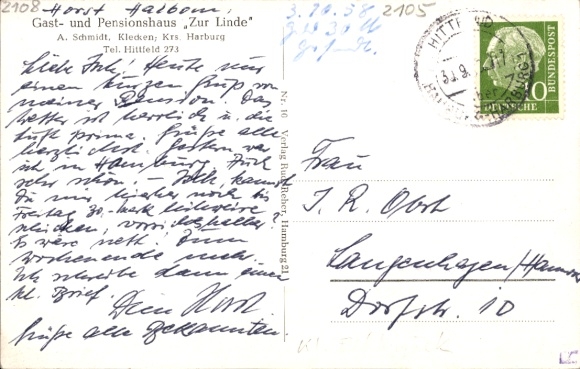 2108
Horst Halbom,
Gast- und Pensionshaus „Zur Linde"
A. Schmidt, Klecken; Krs. Harburg
Tel. Hittfeld 273
Liebe Ink.! Heute nur
einen kurzen Gruß von
meiner Pension. Das
Wetter ist herrlich u. die
Luft prima. Grüße alle
herzlichst. Gestern war
ich in Hamburg. Auch
sehr schön. — Ich, kannst
Du mir noch bis
Freitag 30.- Mark leihweise
schicken, vorsichtshalber?
Es wäre nett. Zum
Wochenende mehr.
Ich schreibe dann einen
kl. Brief.
Dein Horst.
Grüße alle Bekannten.
Nr. 10 Verlag Rud. Reher, Hamburg 21
3.10.58
30 M
gesandt.
2105
HITTFELD
30.9.
HARBURG
10
DEUTSCHE
BUNDESPOST
Frau
I. R. Obst
Langenhagen/Hannov
Dorfstr. 10